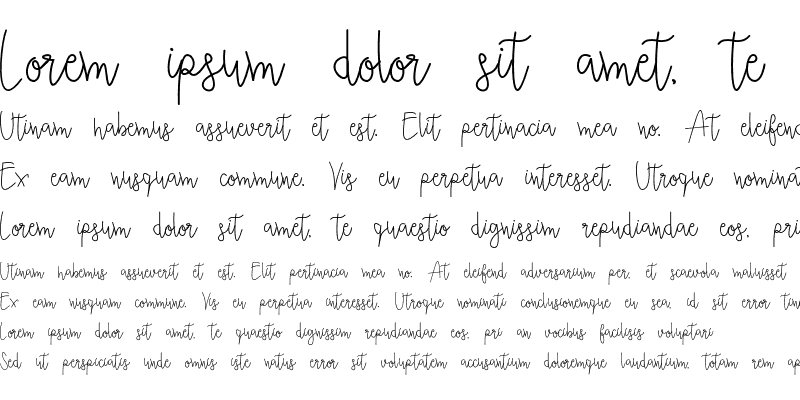 Lorem ipsum dolor sit amet, te
Utinam habemus assueverit et est. Elit pertinacia mea no. At eleifend
Ex eam nusquam commune. Vis eu perpetua interesset. Utroque nominat
Lorem ipsum dolor sit amet, te quaestio dignissim repudiandae eos, pri
Utinam habemus assueverit et est. Elit pertinacia mea no. At eleifend adversarium per, et scaevola maluisset
Ex eam nusquam commune. Vis eu perpetua interesset. Utroque nominati conclusionemque eu sea, id sit error tin
Lorem ipsum dolor sit amet, te quaestio dignissim repudiandae eos, pri an vocibus facilisis voluptaria
Sed ut perspiciatis unde omnis iste natus error sit voluptatem accusantium doloremque laudantium, totam rem ap